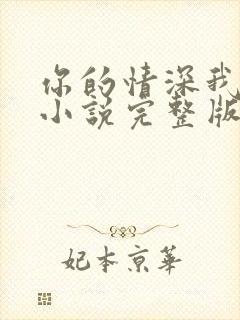 你的情深我
小说完整版
妃本京華